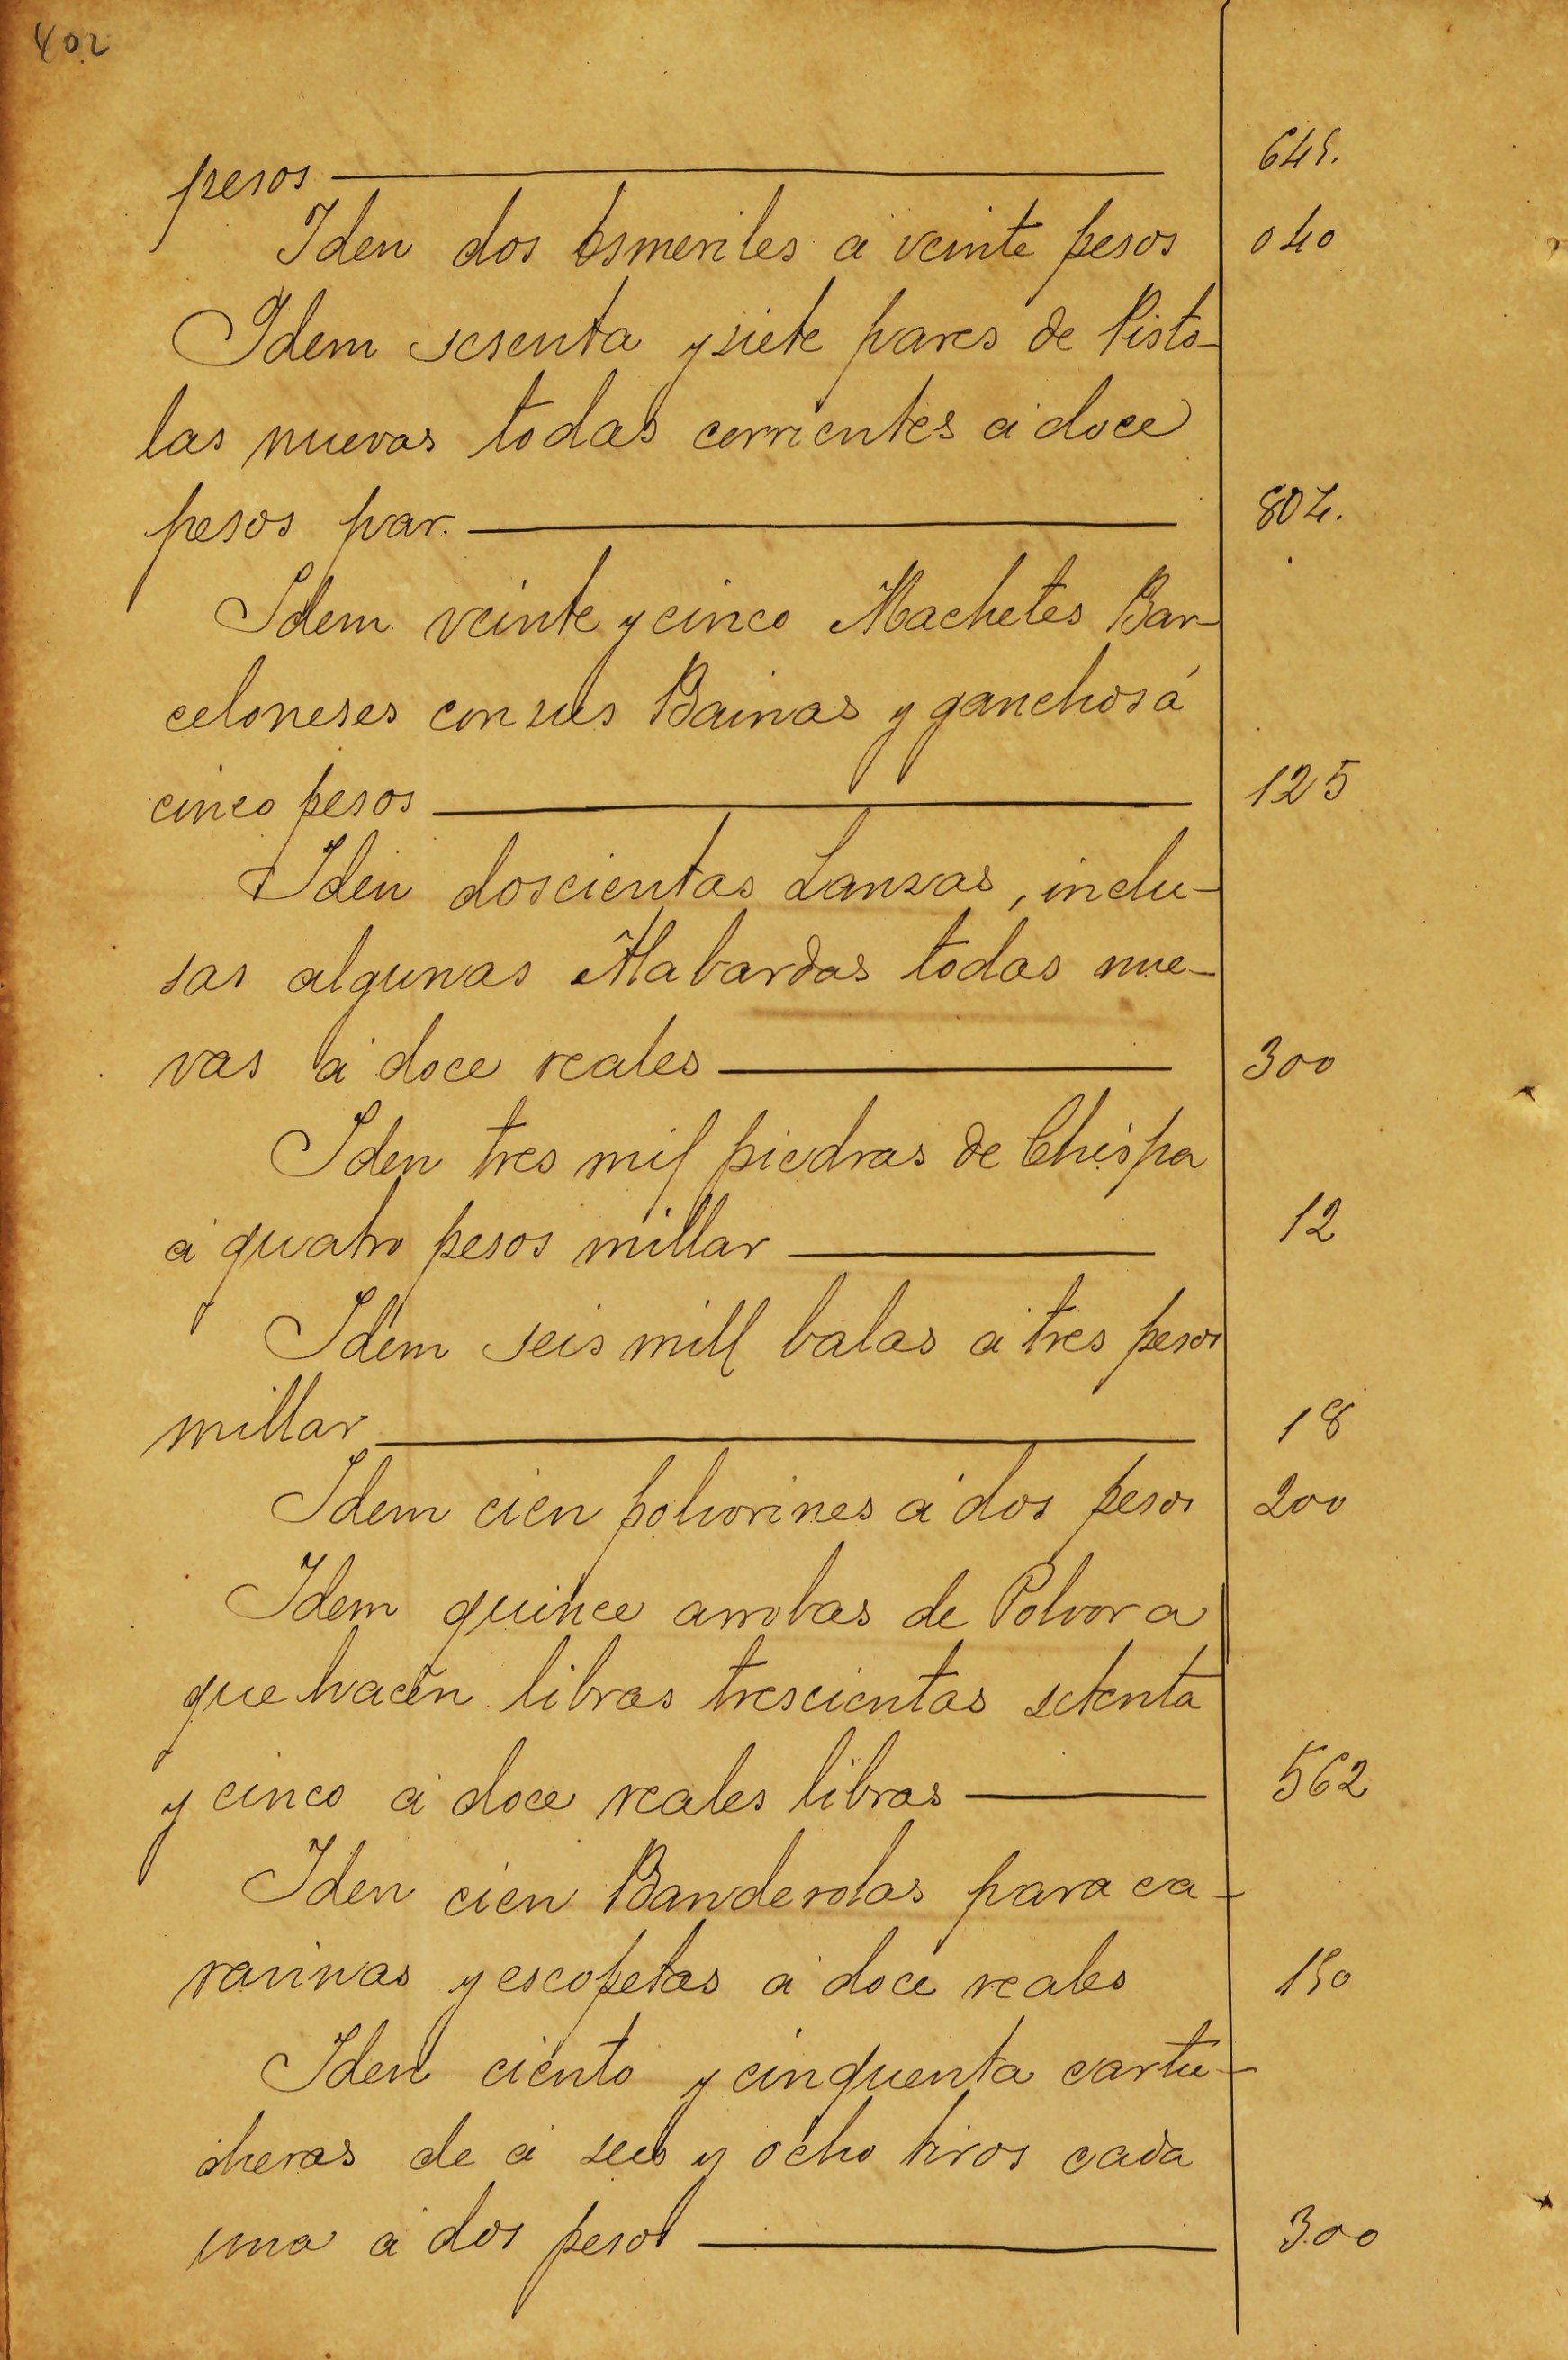 402
pesos ———— 645.
Iden dos Esmeriles a veinte pesos 040
Idem sesenta y siete pares de Pisto-
las nuevas todas corrientes a doce
pesos par. ———— 804.
Idem veinte y cinco Machetes Bar-
celoneses con sus Bainas y ganchos á
cinco pesos ———— 125
Iden doscientas Lanzas, inclu-
sas algunas Alabardas todas nue-
vas a doce reales ———— 300
Iden tres mil piedras de Chispa
a quatro pesos millar ———— 12
Idem seis mill balas a tres pesos
millar ———— 18
Idem cien polvorines a dos pesos 200
Idem quince arrobas de Polvora
que hacen libras trescientas setenta
y cinco a doce reales libras ———— 562
Iden cien Banderolas para ca-
ravinas y escopetas a doce reales 150
Iden ciento y cinquenta cartu-
cheras de a seis y ocho tiros cada
una a dos pesos ———— 300